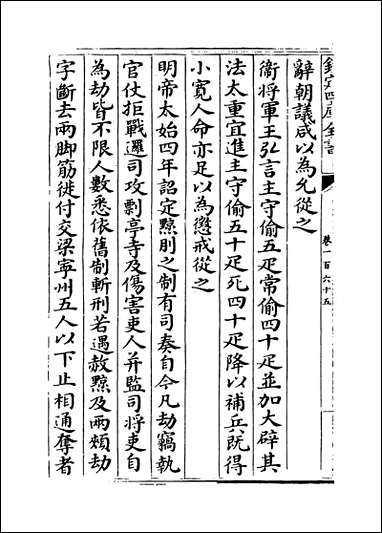 欽定四庫全書
卷一百六十五
辭朝議咸以為允從之
衛将軍王弘言主守偷五疋常偷四十疋並加大辟其
法太重宜進主守偷五十疋死四十疋降以補兵既得
小寛人命亦足以為懲戒從之
明帝太始四年詔定黥刖之制有司奏自今凡劫竊執
官仗拒戰邏司攻剽亭寺及傷害吏人并監司将吏自
為劫皆不限人數悉依舊制斬刑若遇赦黥及兩頰劫
字斷去兩脚筋徙付交梁寧州五人以下止相逼奪者